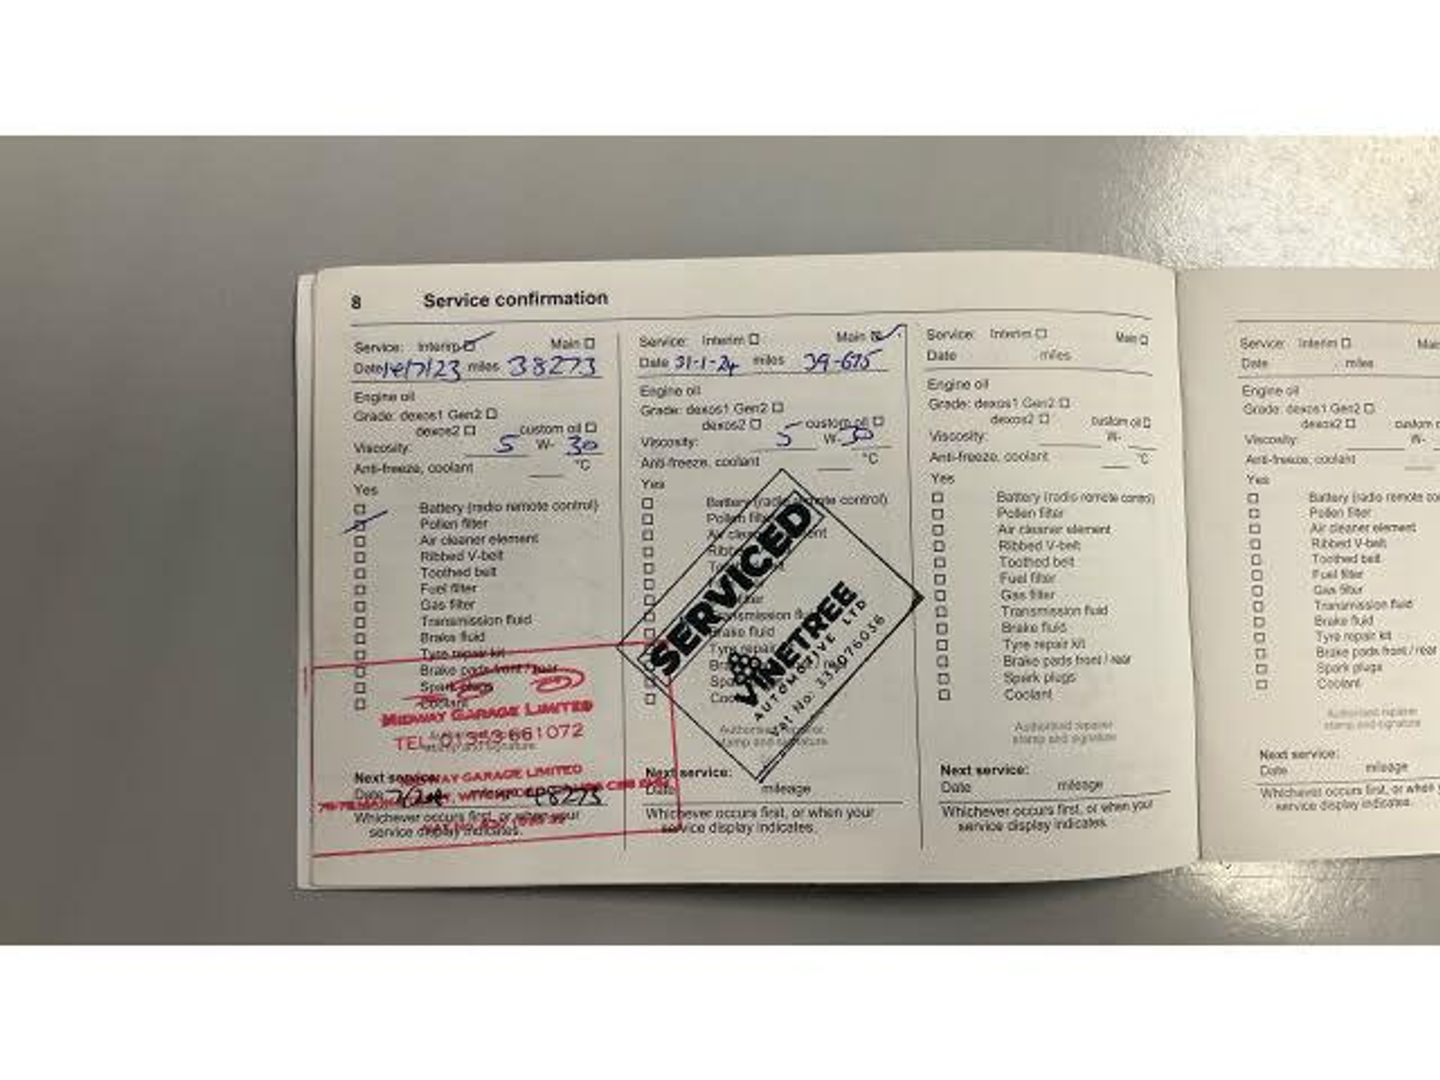 8 Service confirmation
Service: Interim Main
Date 14/7/23 miles 38273
Engine oil
Grade: dexos1 Gen2
dexos2 custom oil
Viscosity: 5 W- 30
Anti-freeze, coolant °C
Yes
Battery (radio remote control)
Pollen filter
Air cleaner element
Ribbed V-belt
Toothed belt
Fuel filter
Gas filter
Transmission fluid
Brake fluid
Tyre repair kit
Brake pads front / rear
Spark plugs
Coolant
MIDWAY GARAGE LIMITED
TEL: 01353 661072
Next service:
MIDWAY GARAGE LIMITED
Date
Whichever occurs first, or when your
service display indicates.
Service: Interim Main
Date 31-1-24 miles 39-675
Engine oil
Grade: dexos1 Gen2
dexos2 custom oil
Viscosity: 5 W- 30
Anti-freeze, coolant °C
Yes
Battery (radio remote control)
Pollen filter
SERVICED
VINETREE
AUTOMOTIVE LTD
Vat No: 339076036
Brake fluid
Tyre repair
Authorised repairer
stamp and signature
Next service:
Date mileage
Whichever occurs first, or when your
service display indicates.
Service: Interim Main
Date miles
Engine oil
Grade: dexos1 Gen2
dexos2 custom oil
Viscosity: W-
Anti-freeze, coolant °C
Yes
Battery (radio remote control)
Pollen filter
Air cleaner element
Ribbed V-belt
Toothed belt
Fuel filter
Gas filter
Transmission fluid
Brake fluid
Tyre repair kit
Brake pads front / rear
Spark plugs
Coolant
Authorised repairer
stamp and signature
Next service:
Date mileage
Whichever occurs first, or when your
service display indicates.
Service: Interim Mai
Date miles
Engine oil
Grade: dexos1 Gen2
dexos2 custom o
Viscosity: W-
Anti-freeze, coolant
Yes
Battery (radio remote co
Pollen filter
Air cleaner element
Ribbed V-belt
Toothed belt
Fuel filter
Gas filter
Transmission fluid
Brake fluid
Tyre repair kit
Brake pads front / rear
Spark plugs
Coolant
Authorised repairer
stamp and signature
Next service:
Date mileage
Whichever occurs first, or when y
service display indicates.